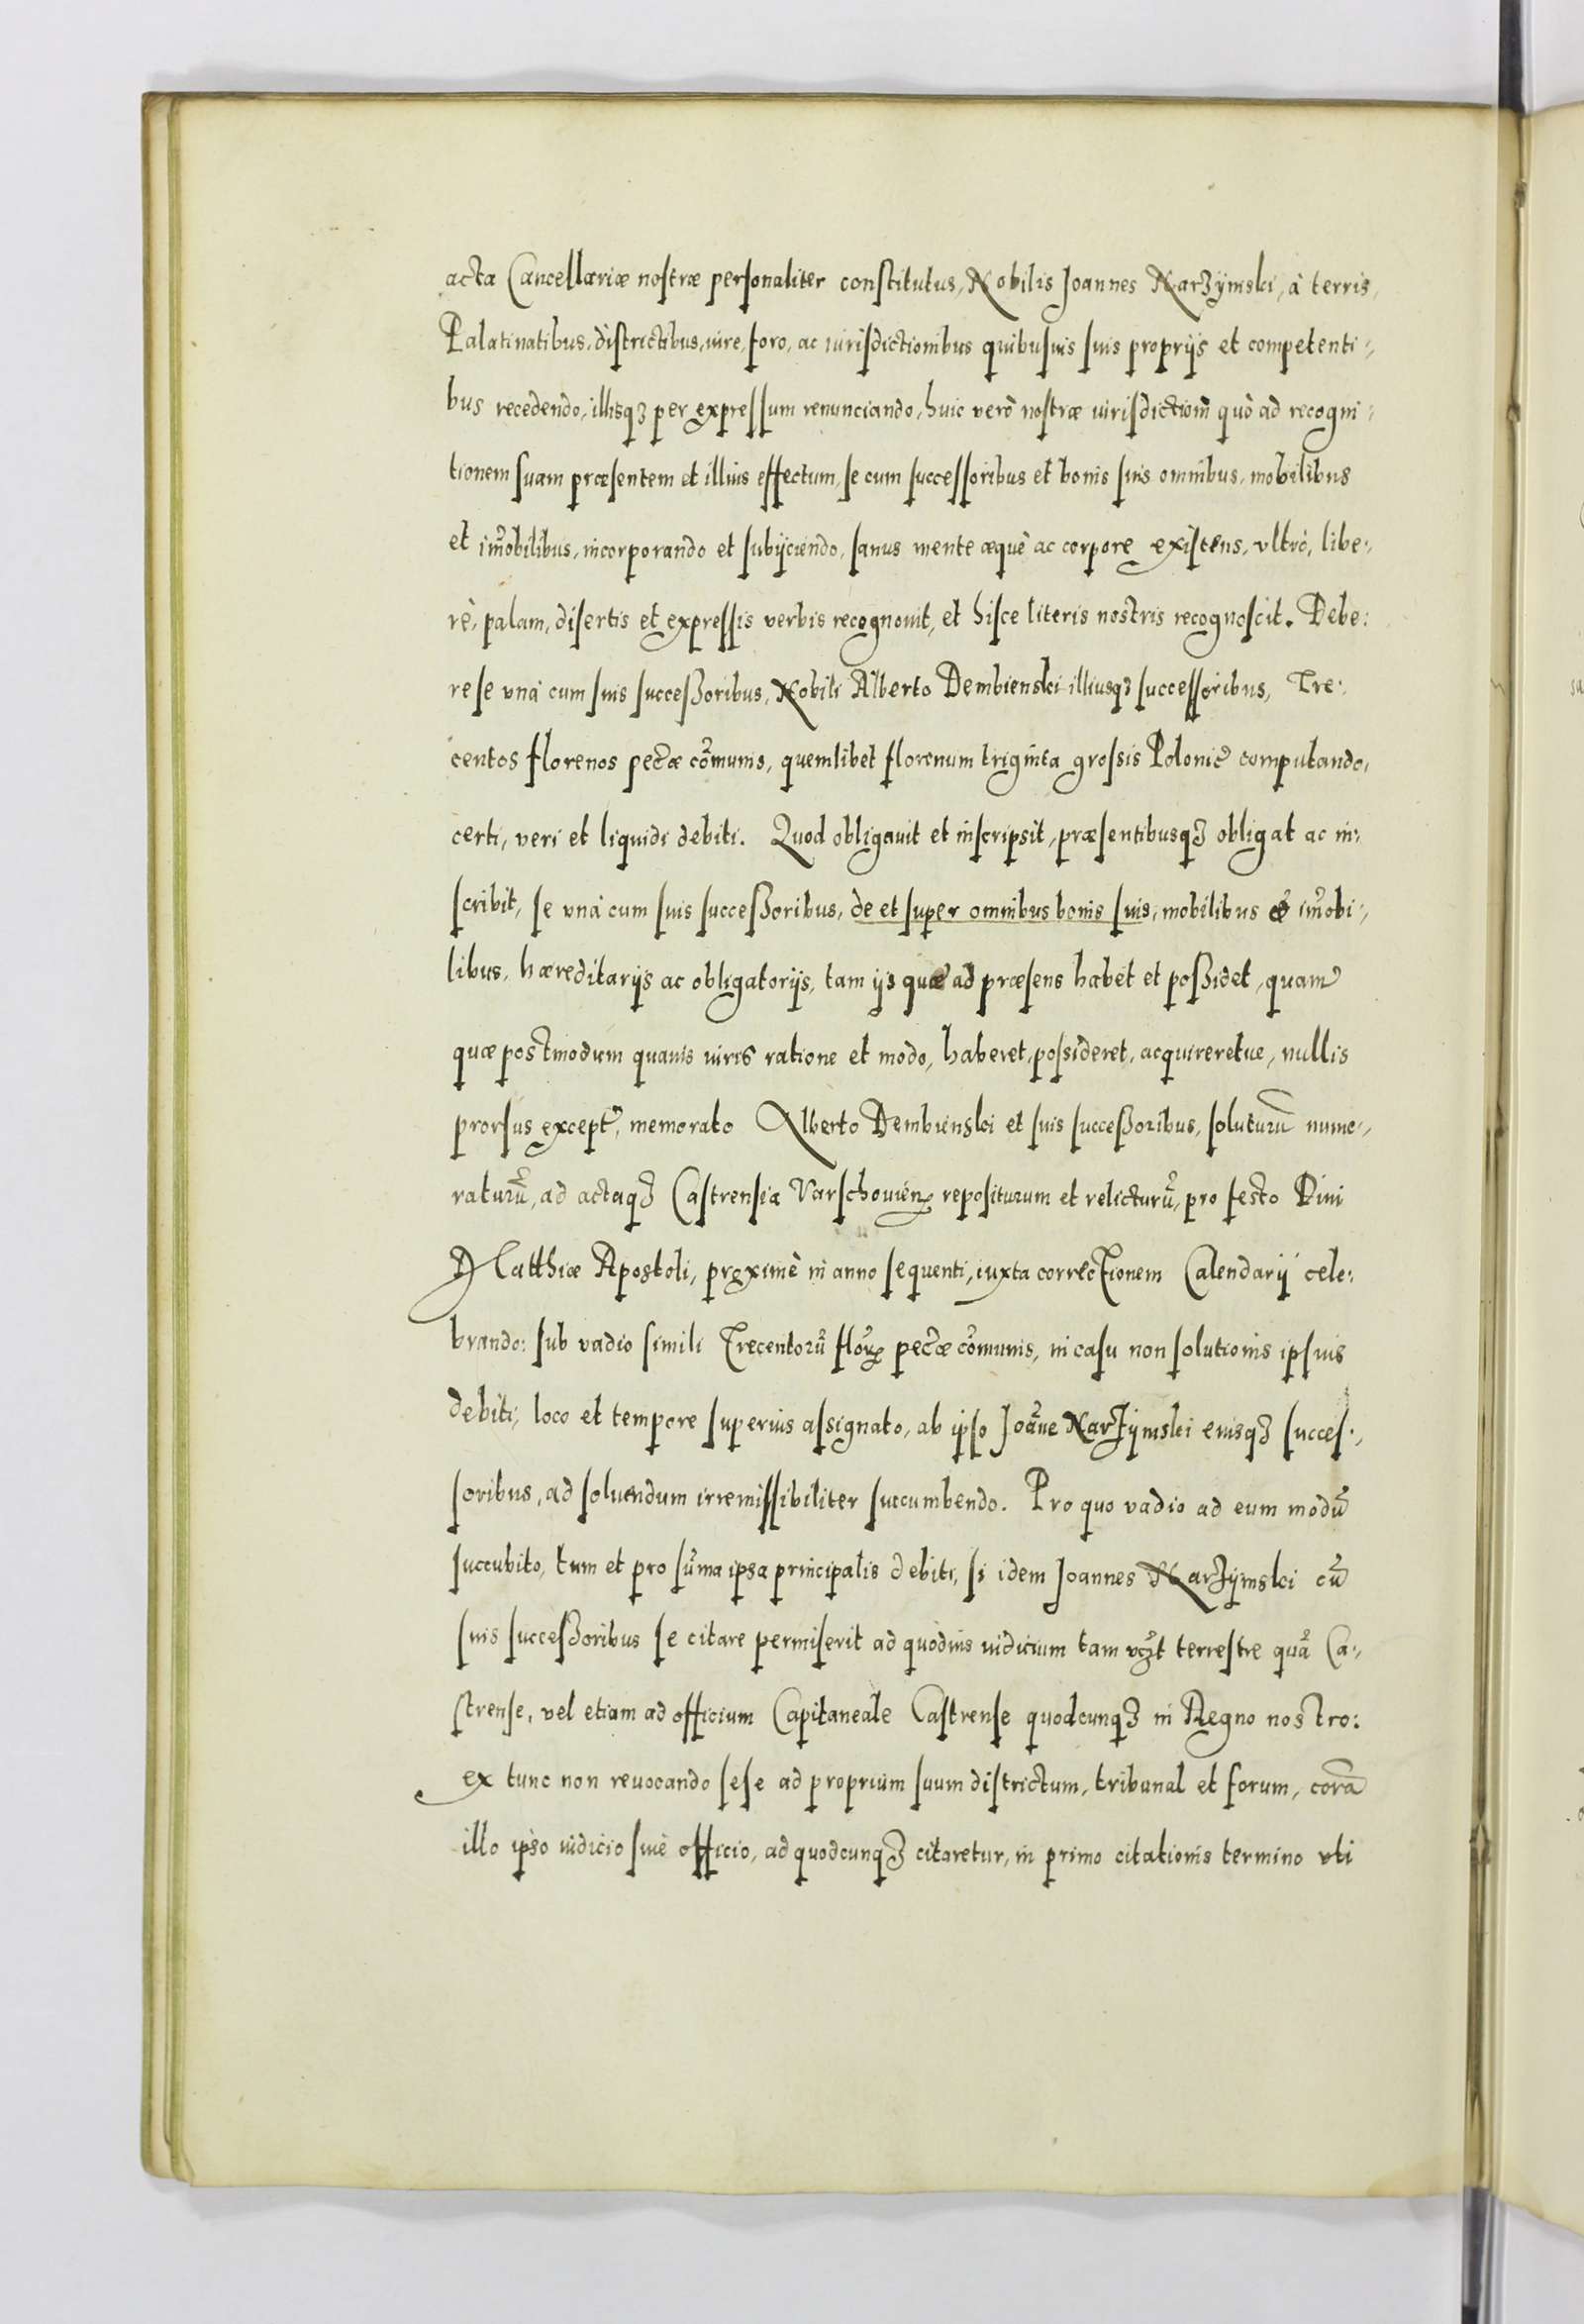 acta Cancellariæ nostræ personaliter constitutus, Nobilis Joannes Narzÿmski, à terris,
Palatinatibus, districtibus, iure, foro, ac iurisdictionibus quibusuis suis proprijs et competenti:
bus recedendo, illisqꝫ per expressum renunciando, huic verò nostræ iurisdictioni quò ad recogni:
tionem suam præsentem et illius effectum, se cum successoribus et bonis suis omnibus, mobilibus
et im̃obilibus, incorporando et subijciendo, sanus mente æquè ac corpore existens, vltrò, libe:
rè, palam, disertis et expressis verbis recognouit, et hisce literis nostris recognoscit. Debe:
re se vnà cum suis successoribus, Nobili Alberto Dembienski illiusqꝫ successoribus, Tre:
centos florenos pec̃æ com̃unis, quemlibet florenum triginta grossis Polonic̃ computando,
certi, veri et liquidi debiti. Quod obligauit et inscripsit, præsentibusqꝫ obligat ac in:
scribit, se vnà cum suis successoribus, de et super omnibus bonis suis, mobilibus et im̃obi:
libus, hæreditarijs ac obligatorijs, tam ijs quæ ad præsens habet et possidet, quam
quæ postmodum quauis iuris ratione et modo, haberet, possideret, acquireretue, nullis
prorsus except̃, memorato Alberto Dembienski et suis successoribus, soluturũ nume:
raturũ, ad actaqꝫ Castrensia Varschouien̄ repositurum et relicturũ, pro festo Diui
Matthiæ Apostoli, proximè in anno sequenti, iuxta correctionem Calendarij cele:
brando: sub vadio simili Trecentorũ flor̃ pec̃æ com̃unis, in casu non solutionis ipsius
debiti, loco et tempore superius assignato, ab ipso Joãne Narzÿmski eiusqꝫ succes:
soribus, ad soluendum irremissibiliter succumbendo. Pro quo vadio ad eum modũ
succubito, tum et pro sum̃a ipsa principalis debiti, si idem Joannes Narzÿmski cũ
suis successoribus se citare permiserit ad quoduis iudicium tam vꝫt terrestre quã Ca:
strense, vel etiam ad officium Capitaneale Castrense quodcunqꝫ in Regno nostro:
ex tunc non reuocando sese ad proprium suum districtum, tribunal et forum, corã
illo ipso iudicio siuè officio, ad quodcunqꝫ citaretur, in primo citationis termino vti